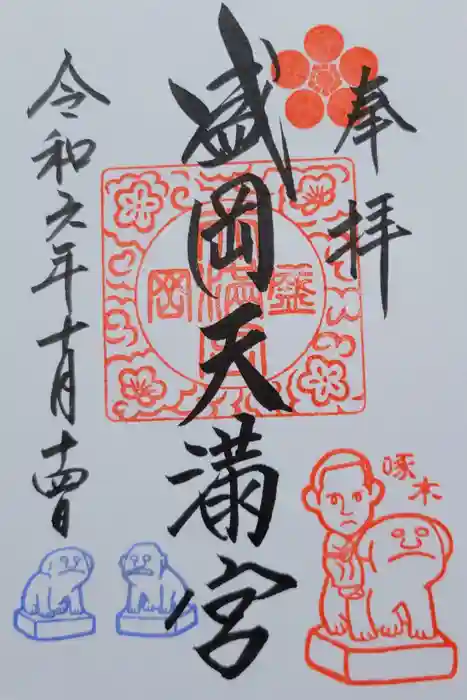 奉拝
盛岡天満宮
令和六年十月十四日
盛岡天満宮
啄木